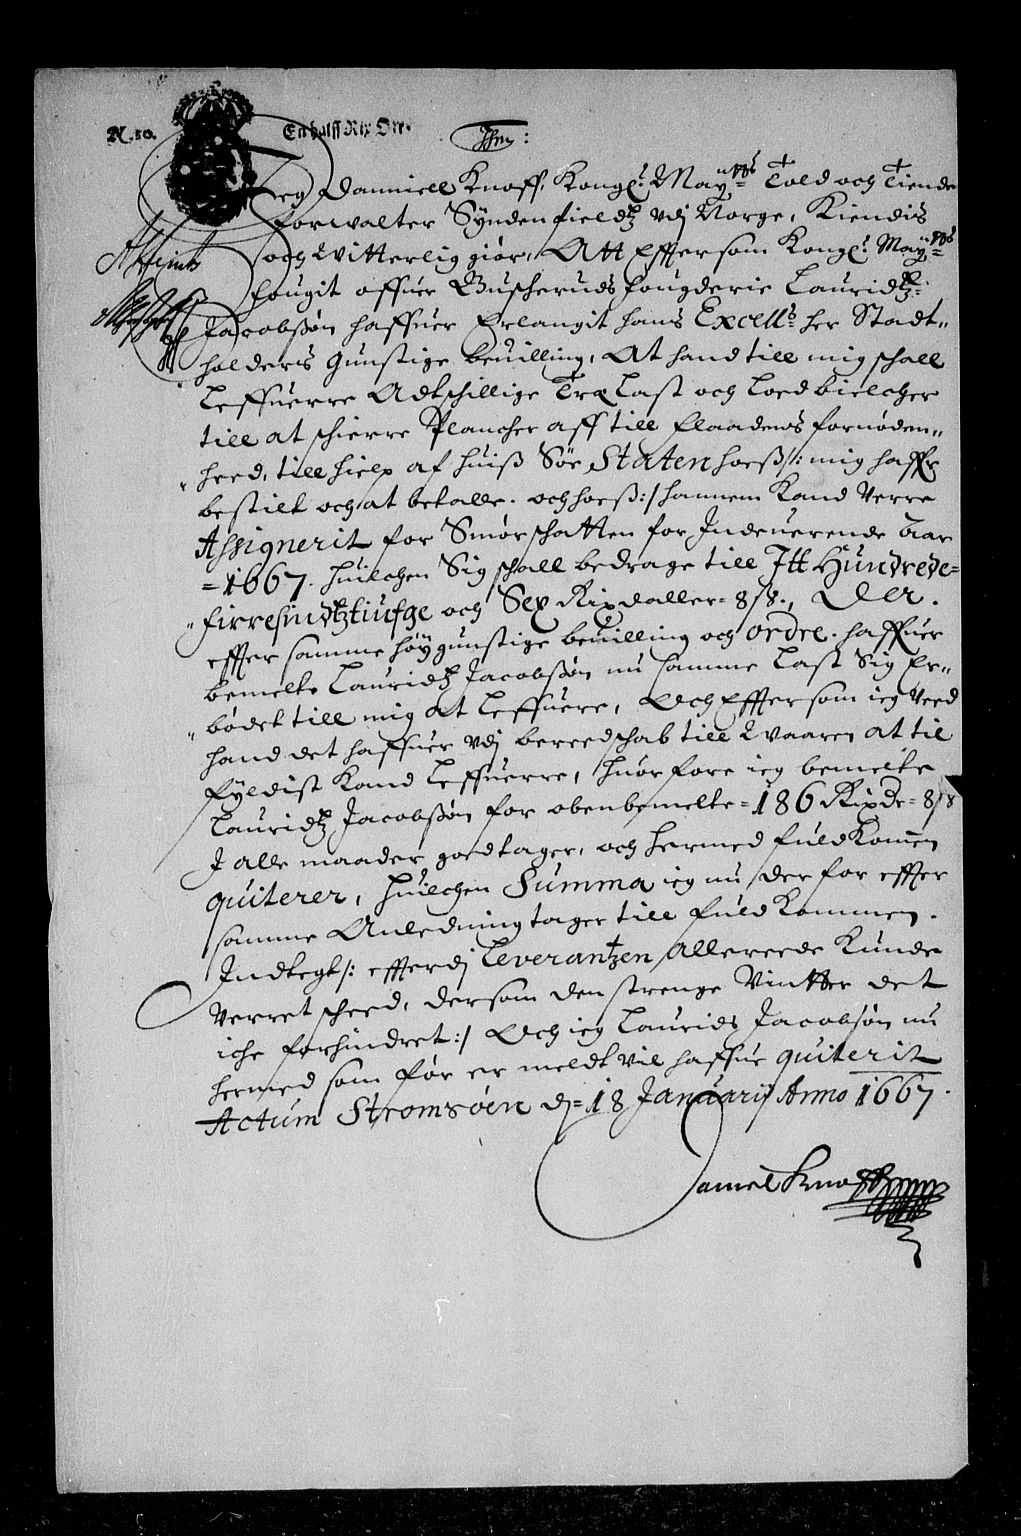 N. 10.
En halff Rix Ort.
Jeg Danniell Knoff, Kongl: May:tts Told och Tiende
forwalter Syndenfieldz udj Norge, Kiendis
och Witterlig giør, Att Effter som Kongl: May:tts
fougit offuer Buscheruds fougderie Lauridtz
Jacobßøn haffuer Erlangit hans Excell:s her Stadt„
holderis gunstige beuilling, At hand till mig schall
Leffuerre Adtschillige Træ Last och Loed bielcher
till at schierre Plancher aff till flaadens fornøden„
heed, till hielp af huiß Søe Staten hoeß /: mig haffr
bestilt och at betalle. och hoeß :/ hannem Kand Verre
Assignerit for Smørschatten for Indeuerende Aar
= 1667. huilchen Sig schall bedrage till Itt Hundrede=
firresindtztiufge och Sex Rixdaller = 8 / 8., Der.
effter samme høygunstige beuilling och ordre. haffuer
bemelte Lauridtz Jacobßøn nu samme Last Sig Er„
bødet till mig at Leffuere, Och Effter som ieg Veed
hand det haffuer udj bereedschab till Waaren at til
fyldist Kand Leffuerre, huorfore ieg bemelte
Lauridtz Jacobßøn for obenbemelte = 186 Rixdr = 8 / 8
J alle maader goedtager, och hermed fuldkomen
quiterer, huilchen Summa ieg nu der for effter
samme Anledning tager till fuldkommen.
Indtegt /: effterdj Leverantzen allereede Kunde
Verret scheed, dersom den strenge Vintter det
iche forhindret :/ Och ieg Laurids Jacobsøn nu
hermed som før er meldt vil haffue quiterit
Actum Stromsøen d= 18 Januarij Anno 1667.
Daniel Knoff